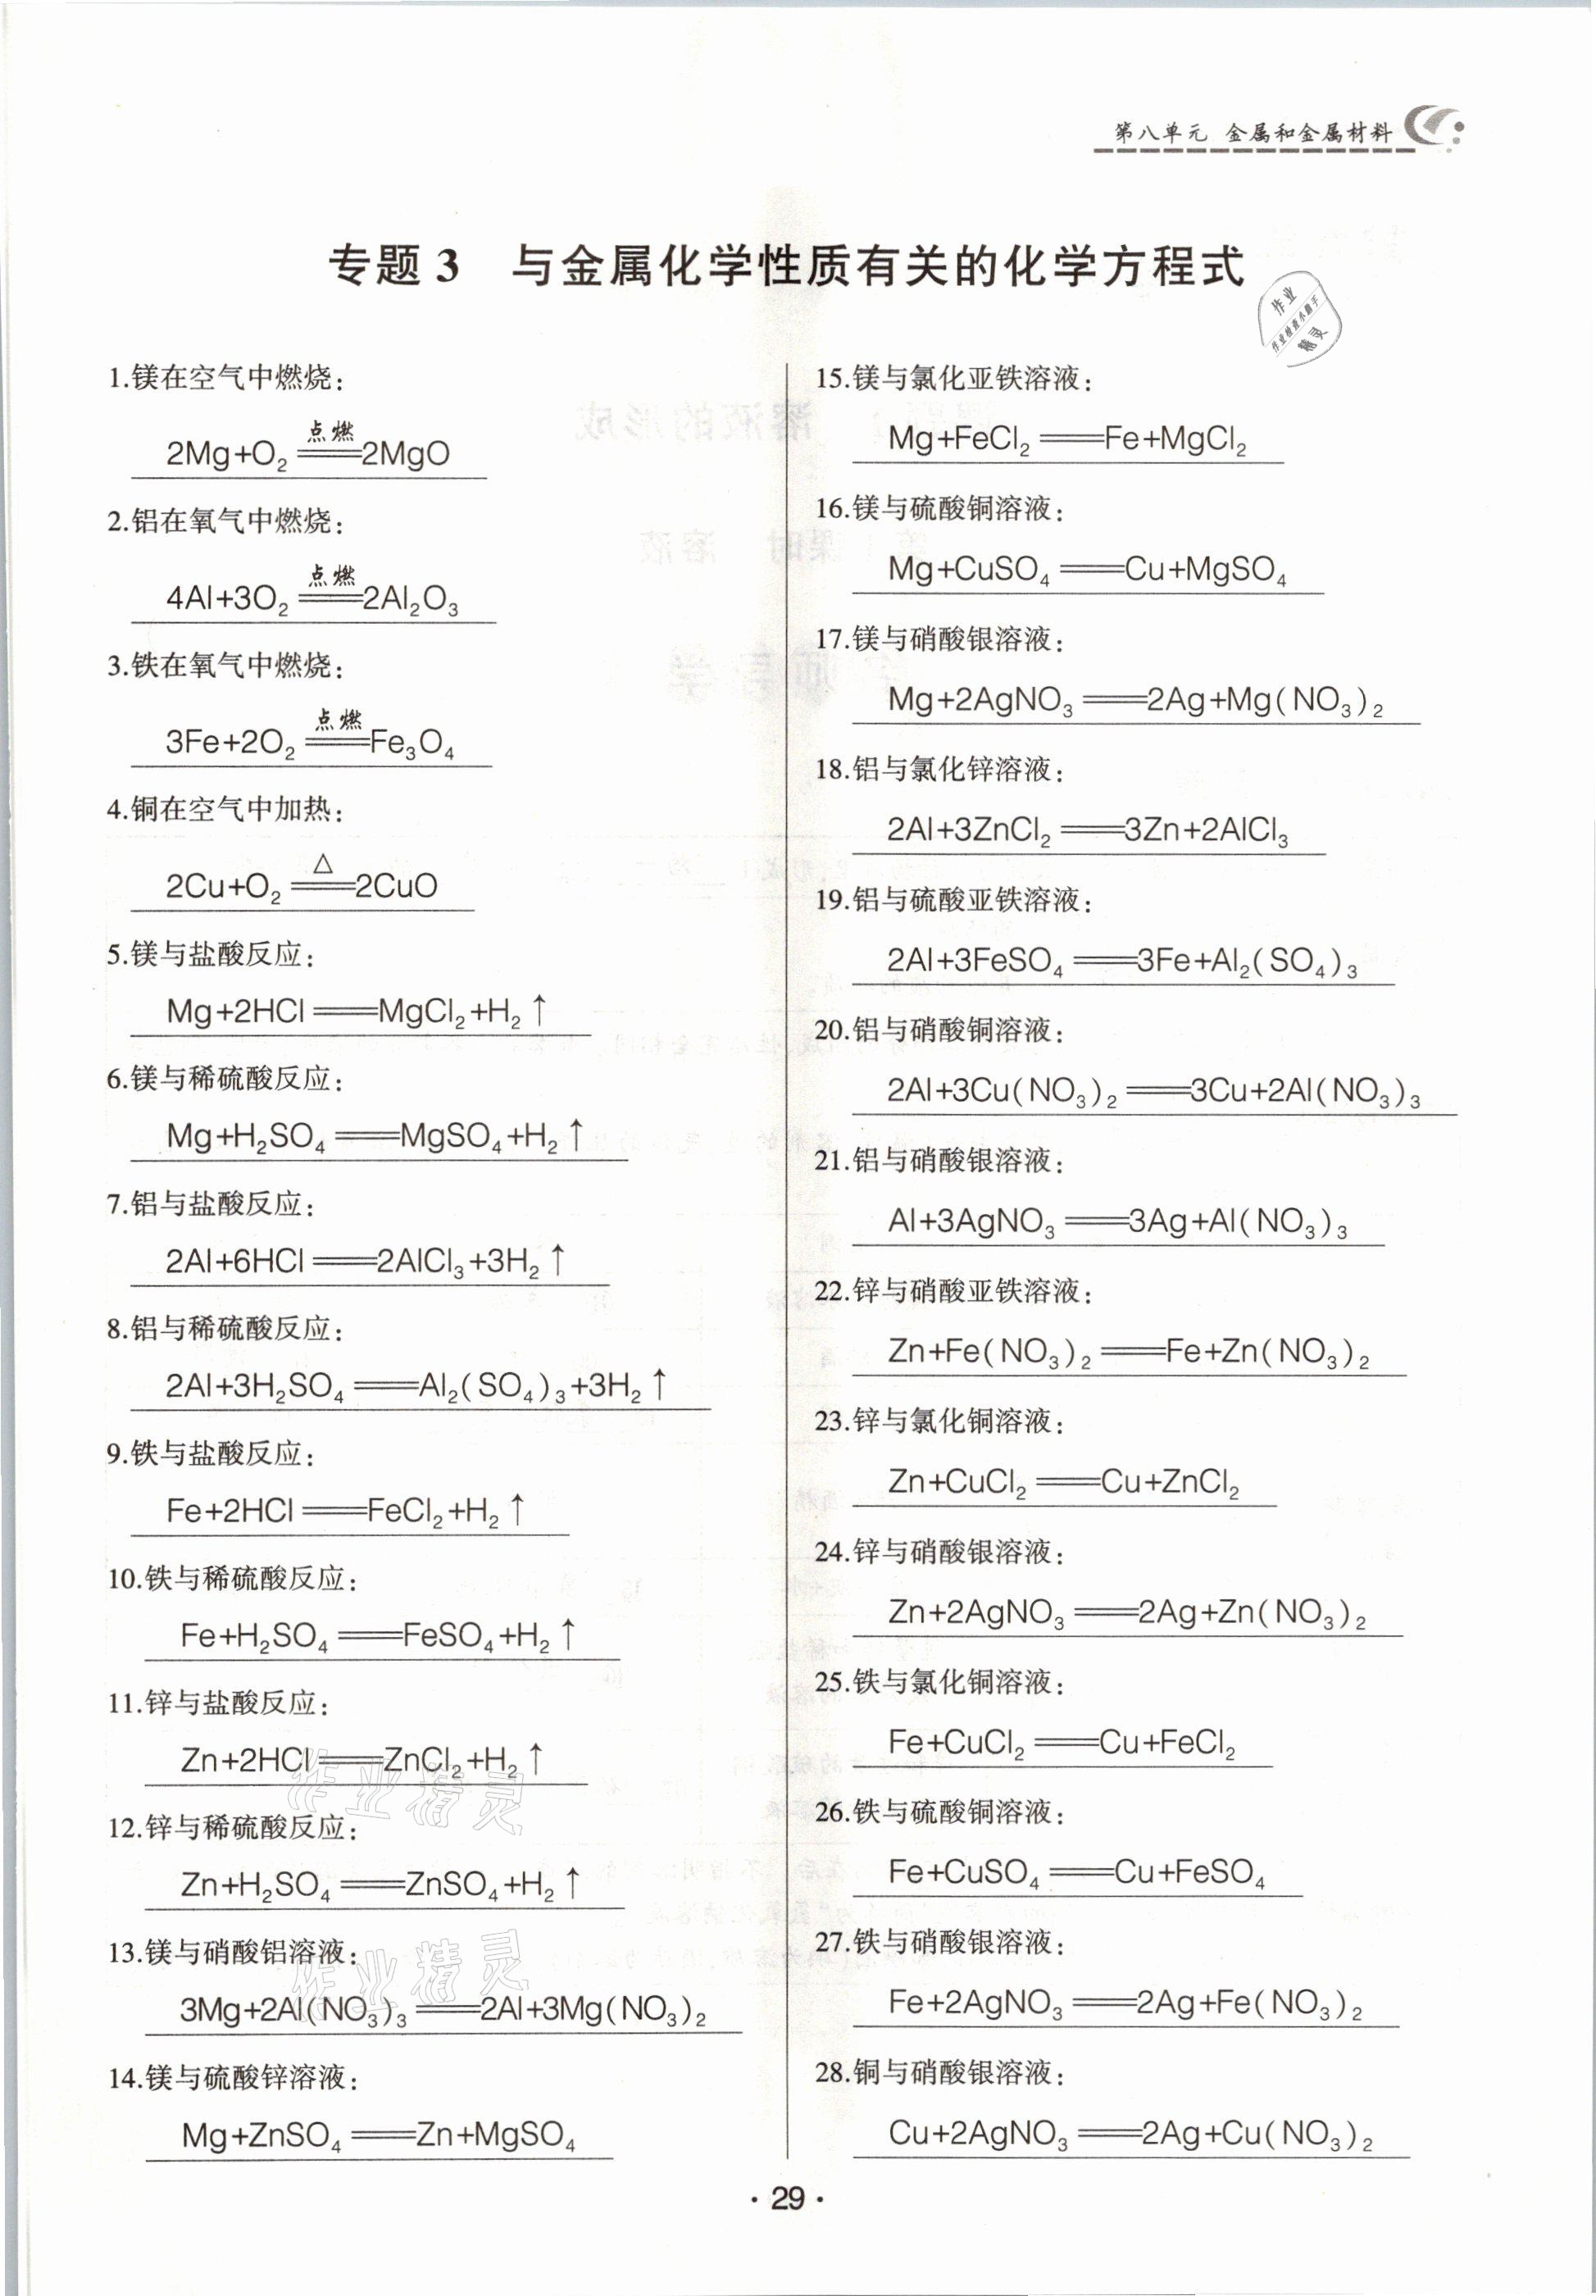 第八单元 金属和金属材料
专题3 与金属化学性质有关的化学方程式
作业
作业检查小助手
精灵
1.镁在空气中燃烧:
2Mg+O₂ 点燃 ═══ 2MgO
2.铝在氧气中燃烧:
4Al+3O₂ 点燃 ═══ 2Al₂O₃
3.铁在氧气中燃烧:
3Fe+2O₂ 点燃 ═══ Fe₃O₄
4.铜在空气中加热:
2Cu+O₂ △ ═══ 2CuO
5.镁与盐酸反应:
Mg+2HCl═══MgCl₂+H₂↑
6.镁与稀硫酸反应:
Mg+H₂SO₄═══MgSO₄+H₂↑
7.铝与盐酸反应:
2Al+6HCl═══2AlCl₃+3H₂↑
8.铝与稀硫酸反应:
2Al+3H₂SO₄═══Al₂(SO₄)₃+3H₂↑
9.铁与盐酸反应:
Fe+2HCl═══FeCl₂+H₂↑
10.铁与稀硫酸反应:
Fe+H₂SO₄═══FeSO₄+H₂↑
11.锌与盐酸反应:
Zn+2HCl═══ZnCl₂+H₂↑
作业精灵
12.锌与稀硫酸反应:
Zn+H₂SO₄═══ZnSO₄+H₂↑
13.镁与硝酸铝溶液:
作业精灵
3Mg+2Al(NO₃)₃═══2Al+3Mg(NO₃)₂
14.镁与硫酸锌溶液:
Mg+ZnSO₄═══Zn+MgSO₄
15.镁与氯化亚铁溶液:
Mg+FeCl₂═══Fe+MgCl₂
16.镁与硫酸铜溶液:
Mg+CuSO₄═══Cu+MgSO₄
17.镁与硝酸银溶液:
Mg+2AgNO₃═══2Ag+Mg(NO₃)₂
18.铝与氯化锌溶液:
2Al+3ZnCl₂═══3Zn+2AlCl₃
19.铝与硫酸亚铁溶液:
2Al+3FeSO₄═══3Fe+Al₂(SO₄)₃
20.铝与硝酸铜溶液:
2Al+3Cu(NO₃)₂═══3Cu+2Al(NO₃)₃
21.铝与硝酸银溶液:
Al+3AgNO₃═══3Ag+Al(NO₃)₃
22.锌与硝酸亚铁溶液:
Zn+Fe(NO₃)₂═══Fe+Zn(NO₃)₂
23.锌与氯化铜溶液:
Zn+CuCl₂═══Cu+ZnCl₂
24.锌与硝酸银溶液:
Zn+2AgNO₃═══2Ag+Zn(NO₃)₂
25.铁与氯化铜溶液:
Fe+CuCl₂═══Cu+FeCl₂
26.铁与硫酸铜溶液:
Fe+CuSO₄═══Cu+FeSO₄
27.铁与硝酸银溶液:
Fe+2AgNO₃═══2Ag+Fe(NO₃)₂
28.铜与硝酸银溶液:
Cu+2AgNO₃═══2Ag+Cu(NO₃)₂
·29·